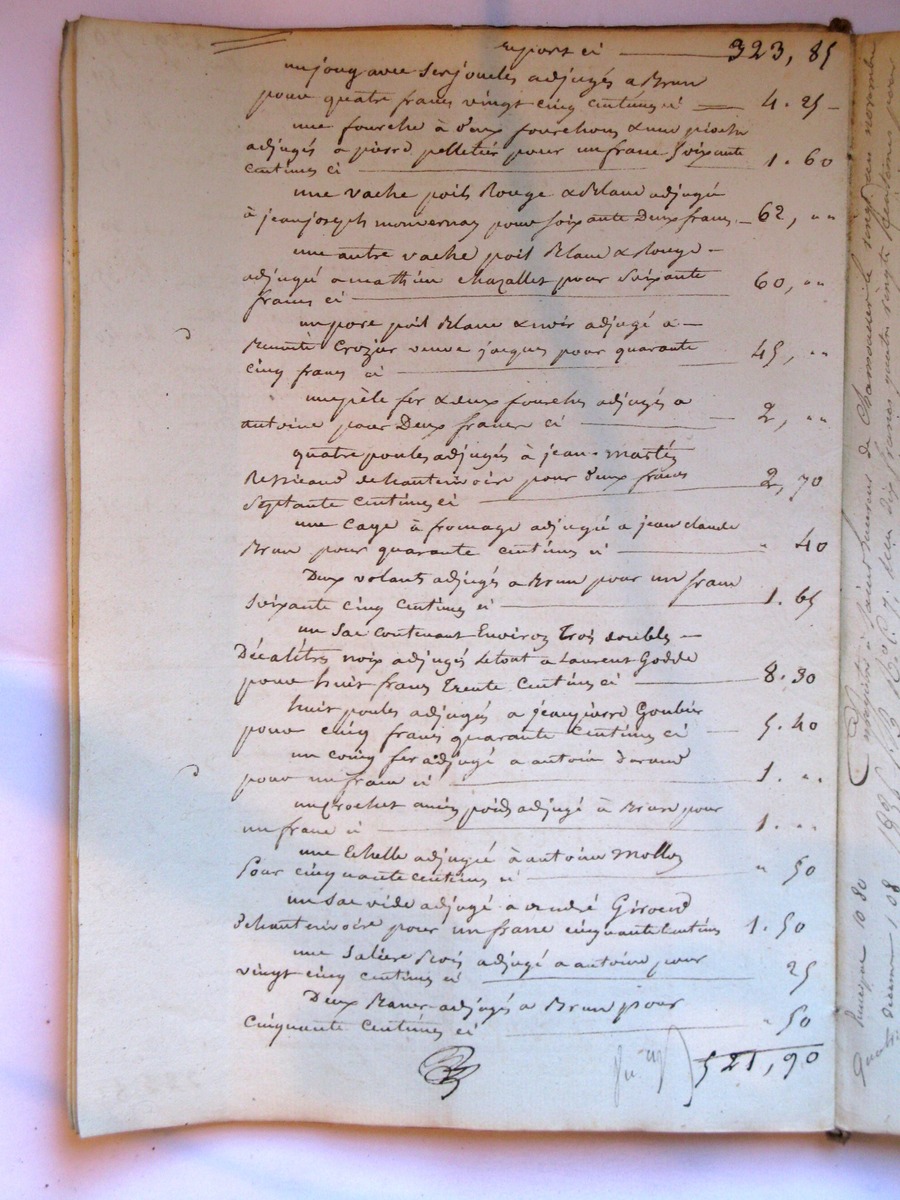 report ci 323, 85
un joug avec ses joucles adjugés a Brun
pour quatre francs vingt cinq centimes ci 4. 25
une fourche à deux fourchons & une pioche
adjugés a pierre pelletier pour un franc soixante
centimes ci 1. 60
une vache poil Rouge & Blanc adjugée
à jean joseph monvernay pour soixante Deux francs 62, ""
une autre vache poil Blanc & Rouge
adjugé a mathieu chazallet pour soixante
francs ci 60, ""
un porc poil Blanc & noir adjugé a
Crozier veuve jacques pour quarante
cinq francs ci 45, ""
une pèle fer & deux fourches adjugés a
antoine pour Deux francs ci 2, ""
quatre poules adjugés à jean
dehauterivoire pour deux francs
septante centimes ci 2, 70
une cage à fromage adjugée a jean claude
Brun pour quarante centimes ci " 40
Deux volants adjugés a Brun pour un franc
soixante cinq centimes ci 1. 65
un sac contenant Environ Trois doubles
Décalitres noix adjugés le tout a Laurent Godde
pour huit francs Trente centimes ci 8. 30
huit poules adjugés a jean pierre Goubier
pour cinq francs quarante centimes ci 5. 40
un coing fer adjugé a antoine durand
pour un franc ci 1. ""
un crochet ancien poids adjugé à Brun pour
un franc ci 1. ""
une Echelle adjugée à antoine Mollon
Pour cinquante centimes ci " 50
un sac vide adjugé a andré Giroud
dhauterivoire pour un franc cinquante centimes 1. 50
une Salière Bois adjugé a antoine pour
vingt cinq centimes ci 25
Deux Bancs adjugés a Brun pour
cinquante centimes ci " 50
521, 90